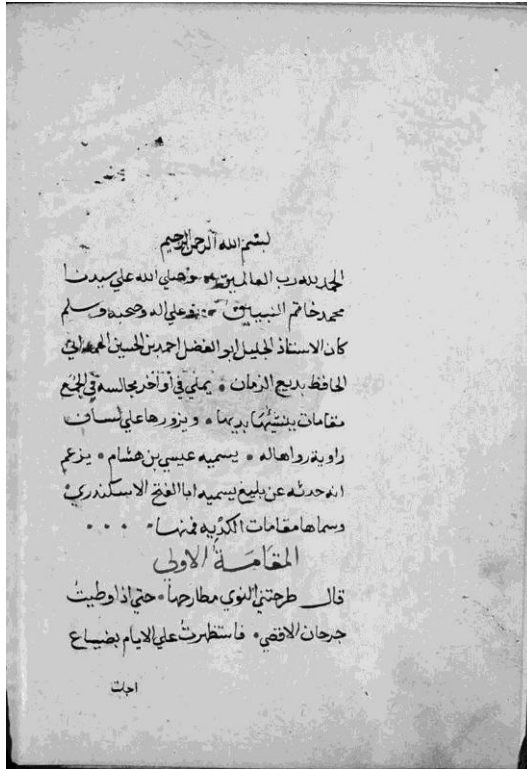 بسم الله الرحمن الرحيم
الحمد لله رب العالمين وصلى الله علي سيدنا
محمد خاتم النبيين وعلي اله وصحبه وسلم
كان الاستاذ الجليل ابو الفضل احمد بن الحسين الهمداني
الحافظ بديع الزمان يملي في أواخر مجالسه في الجمع
مقامات ينشئها بديها ويزورها علي لسان
راوية رواها له يسميه عيسي بن هشام يزعم
انه حدثه عن بليغ يسميه ابا الفتح الاسكندري
وسماها مقامات الكديه فمنها
المقامة الاولي
قال طرحتني النوي مطارحها حتي اذا وطيت
جرجان الاقصي فاستظهرت علي الايام بضياع
اجلت